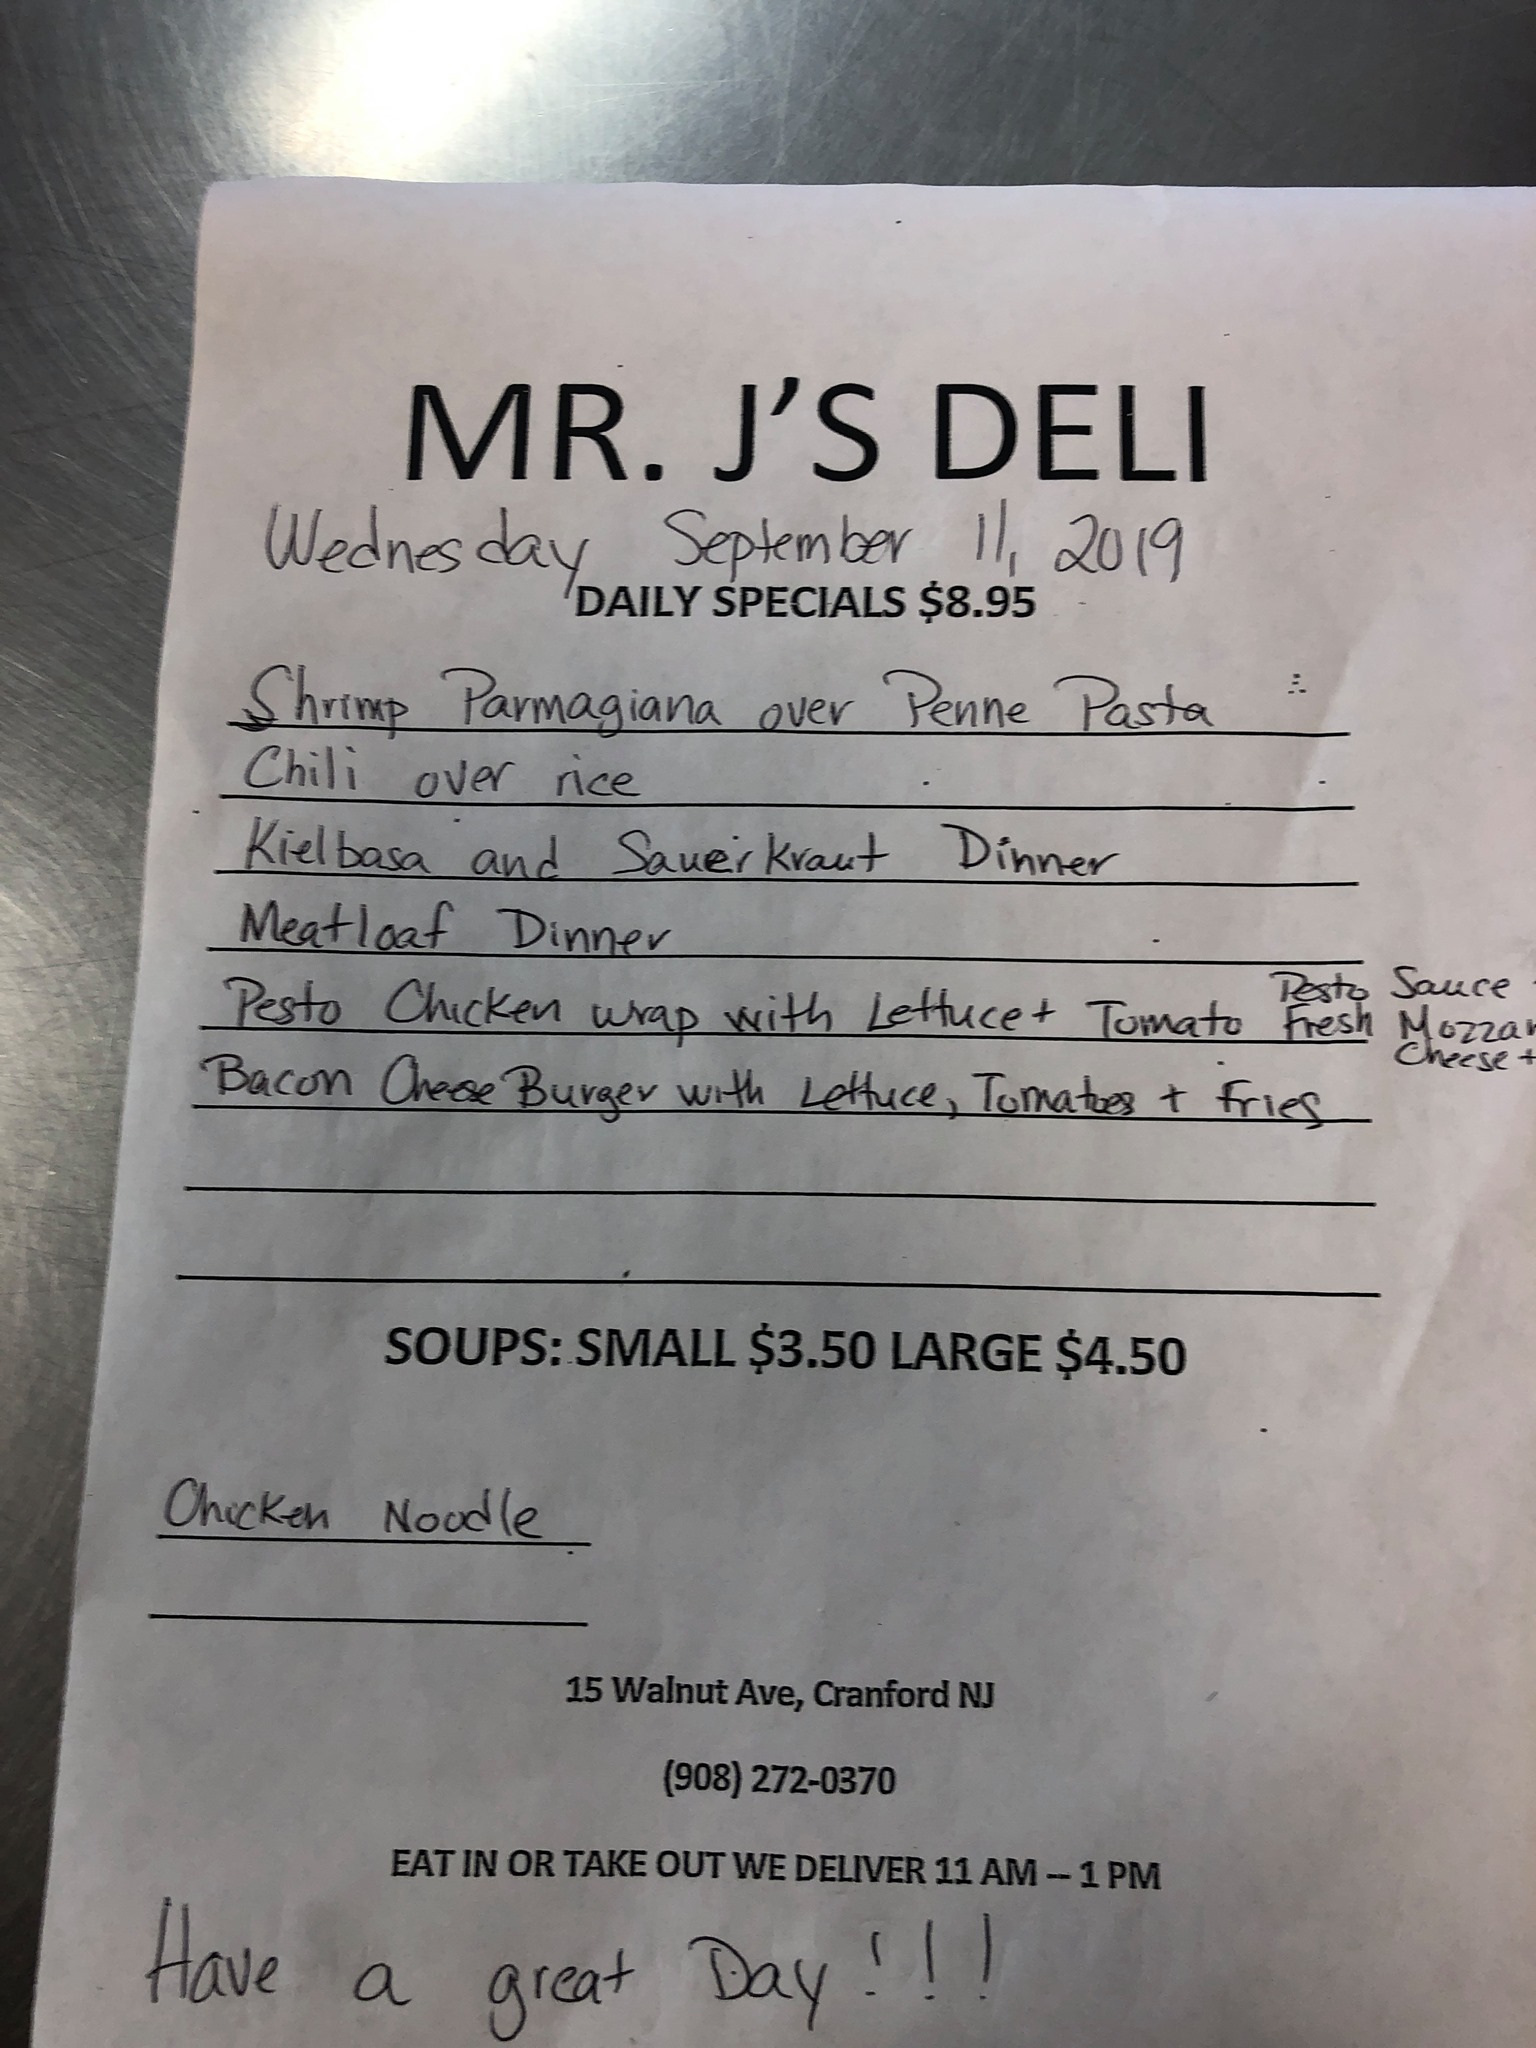 MR. J'S DELI
Wednesday September 11, 2019
DAILY SPECIALS $8.95
Shrimp Parmagiana over Penne Pasta
Chili over rice
Kielbasa and Sauerkraut Dinner
Meatloaf Dinner
Pesto Chicken wrap with Lettuce + Tomato Pesto Sauce
Fresh
Cheese +
Bacon Cheese Burger with Lettuce, Tomatoes + fries
SOUPS: SMALL $3.50 LARGE $4.50
Chicken Noodle
15 Walnut Ave, Cranford NJ
(908) 272-0370
EAT IN OR TAKE OUT WE DELIVER 11 AM -- 1 PM
Have a great Day!!!